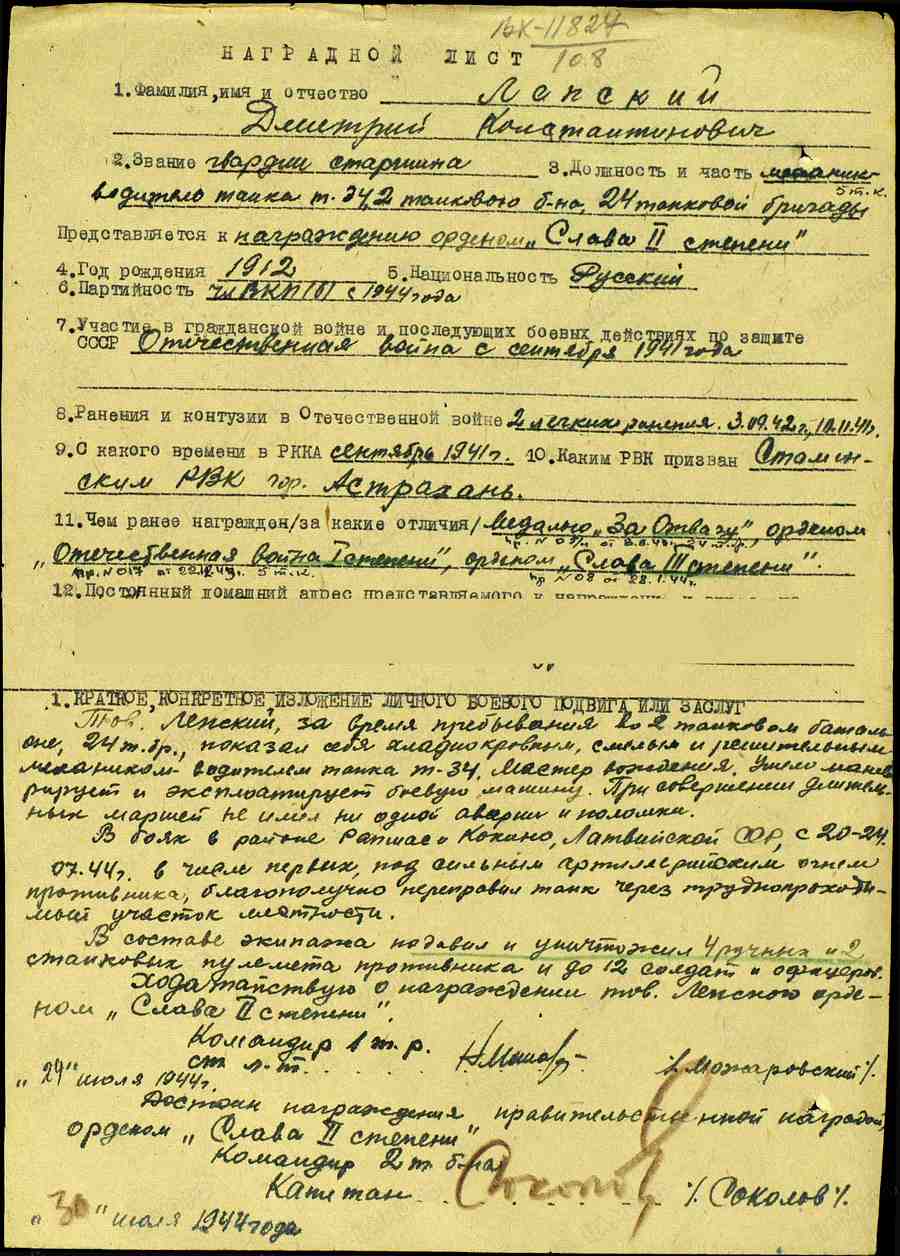 ВК-11824
108
НАГРАДНОЙ ЛИСТ
1.Фамилия,имя и отчество Лепский
Дмитрий Константинович
2.Звание гвардии старшина 3.Должность и часть механик
5 т.к.
водитель танка т-34, 2 танкового б-на, 24 танковой бригады
Представляется к награждению орденом „Слава II степени"
4.Год рождения 1912 5.Национальность Русский
6.Партийность чл ВКП(б) с 1944 года
7.Участие в гражданской войне и последующих боевых действиях по защите
СССР Отечественная война с сентября 1941 года
8.Ранения и контузии в Отечественной войне 2 легких ранения. 3.09.42г., 10.11.41г.
9.С какого времени в РККА сентябрь 1941г. 10.Каким РВК призван Сталин-
ским РВК гор. Астрахань.
11.Чем ранее награжден/за какие отличия/ Медалью „За Отвагу", орденом
„Отечественная война I степени", орденом „Слава III степени".
пр. №017 от 22.12.43г. 5 т.к. пр №08 от 28.1.44г.
12.Постоянный домашний адрес представляемого к награждению
1.КРАТКОЕ,КОНКРЕТНОЕ ИЗЛОЖЕНИЕ ЛИЧНОГО БОЕВОГО ПОДВИГА ИЛИ ЗАСЛУГ
Тов. Лепский, за время пребывания во 2 танковом баталь-
оне, 24 т.бр., показал себя хладнокровным, смелым и решительным
механиком-водителем танка т-34. Мастер вождения. Умело манев
рирует и эксплоатирует боевую машину. При совершении длитель-
ных маршей не имел ни одной аварии и поломки.
В боях в районе Кокино, Латвийской ССР, с 20-24.
07.44г. в числе первых, под сильным артиллерийским огнем
противника, благополучно переправил танк через труднопроходи-
мый участок местности.
В составе экипажа подавил и уничтожил 4 ручных и 2
станковых пулемета противника и до 12 солдат и офицеров.
Ходатайствую о награждении тов. Лепского орде-
ном „Слава II степени".
Командир 1 т.р.
ст. л-т /. Можаровский/.
„29" июля 1944г.
Достоин награждения правительственной наградой,
орденом „Слава II степени"
Командир 2 т б-на
Капитан Соколов /. Соколов/.
„30" июля 1944 года